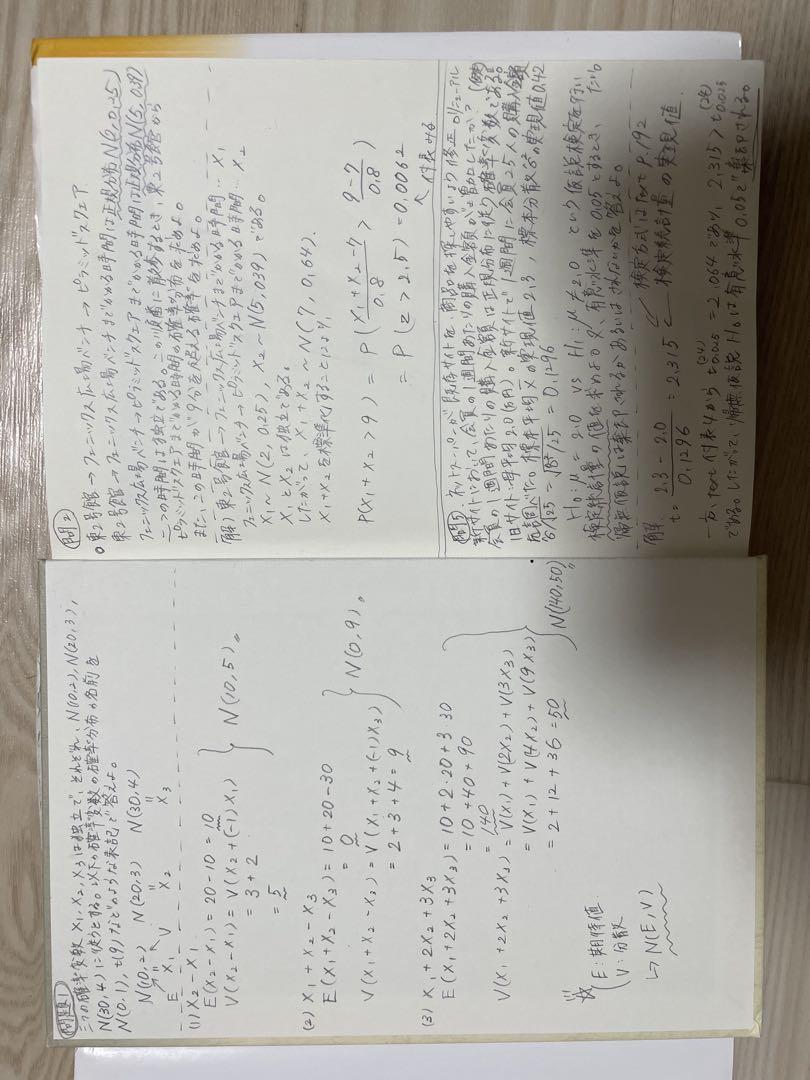 問題1
三つの確率変数 X1, X2, X3 は独立で、それぞれ、N(10,2), N(20,3),
N(30,4)に従うとする。以下の確率変数の確率分布の名前を
N(0,1), t(9)などのような表記で答えよ。
N(10,2) N(20,3) N(30,4)
E X1 V X2 X3
(1) X2 - X1
E(X2-X1) = 20-10 = 10
V(X2-X1) = V(X2+(-1)X1)
= 3+2
= 5
N(10,5)。
(2) X1+X2-X3
E(X1+X2-X3) = 10+20-30
= 0
V(X1+X2-X3) = V(X1+X2+(-1)X3)
= 2+3+4 = 9
N(0,9)。
(3) X1+2X2+3X3
E(X1+2X2+3X3) = 10+2·20+3·30
= 10+40+90
= 140
V(X1+2X2+3X3) = V(X1)+V(2X2)+V(3X3)
= V(X1)+V(4X2)+V(9X3)
= 2+12+36 = 50
N(140,50)
E:期待値
V:分散
↳ N(E,V)
問2
東2号館→フェニックス広場ベンチ→ピラミッドスクェア
東2号館→フェニックス広場ベンチまでかかる時間は正規分布N(2,0.25)
フェニックス広場ベンチ→ピラミッドスクェアまでかかる時間は正規分布N(5,0.39)
二つの時間は独立である。この順番に移動するとき、東2号館から
ピラミッドスクェアまでかかる時間の確率分布を求めよ。
また、この時間が9分を超える確率を求めよ。
解. 東2号館→フェニックス広場ベンチまでかかる時間… X1
フェニックス広場ベンチ→ピラミッドスクェアまでかかる時間… X2
X1~N(2, 0.25), X2~N(5, 039)である。
X1とX2は独立である。
したがって、X1+X2~N(7, 0.64).
X1+X2を標準化することにより、
P(X1+X2>9) = P(X1+X2-7/0.8 > 9-7/0.8)
= P(Z>2.5) = 0.0062
↖付表みる
問5 ネットスーパーが既存サイトを、商品を探しやすいよう修正のリニューアル
新サイトにおいて、会員の1週間あたりの購入金額が増加したか?
会員の1週間あたりの購入金額は正規分布に従う確率変数である。
旧サイト…母平均2.0(万円)。新サイトで1週間に会員25人の購入金額
を調べた。標本平均X̄の実現値2.3, 標本分散σ̂の実現値0.42
σ̂/√25 = 0.1296
H0: μ = 2.0 vs H1: μ ≠ 2.0 という仮説検定を行い
検定統計量の値を求めよ。又、有意水準を0.05とするとき、
帰無仮説は棄却されるかあるいはされないかを答えよ。
解. ← 検定方式はText P.192
t = 2.3-2.0/0.1296 = 2.315 ← 検定統計量の実現値.
一方、Text付表4から t0.025(24) = 2.064であり、2.315 > t0.025(24)
である。したがって、帰無仮説H0は有意水準0.05で棄却される。